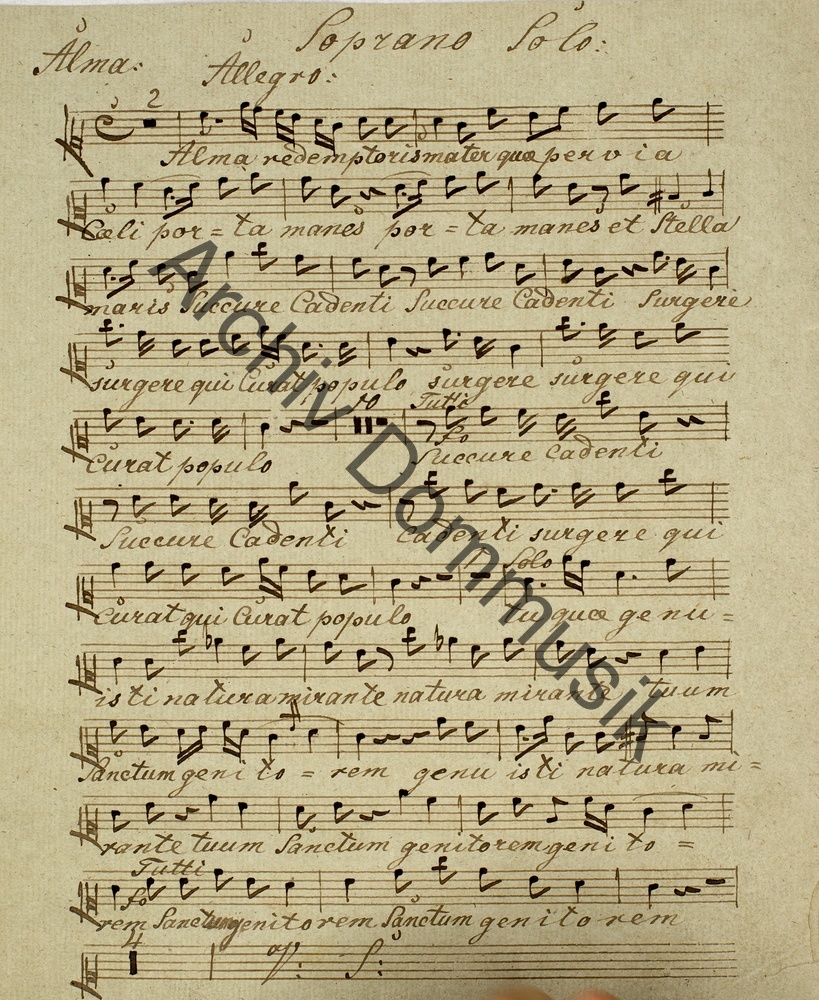 Soprano Solo:
Alma: Allegro:
2
Alma redemptoris mater quæ per v i a
Cœli por = ta manes por = ta manes et Stella
maris Succure Cadenti Succure Cadenti Surgere
surgere qui Curat populo surgere surgere qui
10 Tutti
fo
Curat populo Succure Cadenti
Succure Cadenti Cadenti surgere qui
Solo
Curat qui Curat populo Tu quæ genu =
isti natura mirante natura mirante tuum
Sanctum geni to = rem genu isti natura mi =
rante tuum Sanctum genitorem geni to =
Tutti
fo
rem Sanctum genitorem Sanctum genitorem
4
S:
Archiv Dommusik